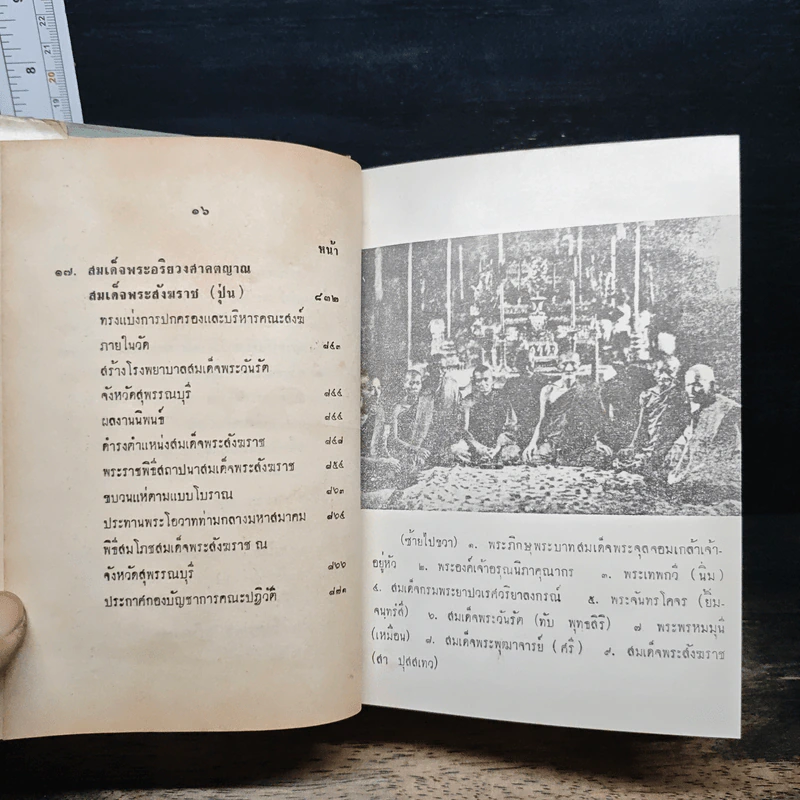 ๑๖
หน้า
๑๗. สมเด็จพระอริยวงศาคตญาณ
สมเด็จพระสังฆราช (ปุ่น) ๘๓๒
ทรงแบ่งการปกครองและบริหารคณะสงฆ์
ภายในวัด ๘๔๓
สร้างโรงพยาบาลสมเด็จพระวันรัต
จังหวัดสุพรรณบุรี ๘๔๔
ผลงานนิพนธ์ ๘๔๔
ดำรงตำแหน่งสมเด็จพระสังฆราช ๘๔๗
พระราชพิธีสถาปนาสมเด็จพระสังฆราช ๘๕๔
ขบวนแห่ตามแบบโบราณ ๘๖๓
ประทานพระโอวาทท่ามกลางมหาสมาคม ๘๖๔
พิธีสมโภชสมเด็จพระสังฆราช ณ
จังหวัดสุพรรณบุรี ๘๖๖
ประกาศกองบัญชาการคณะปฏิวัติ ๘๗๑
(ซ้ายไปขวา) ๑. พระภิกษุพระบาทสมเด็จพระจุลจอมเกล้าเจ้า-
อยู่หัว ๒. พระองค์เจ้าอรุณนิภาคุณากร ๓. พระเทพกวี (นิ่ม)
๔. สมเด็จกรมพระยาปวเรศวริยาลงกรณ์ ๕. พระจันทรโคจร (ยิ้ม-
จนฺทรํสี) ๖. สมเด็จพระวันรัต (ทับ พุทธสิริ) ๗ พระพรหมมุนี
(เหมือน) ๘. สมเด็จพระพุฒาจารย์ (ศรี) ๙. สมเด็จพระสังฆราช
(สา ปุสสเทว)